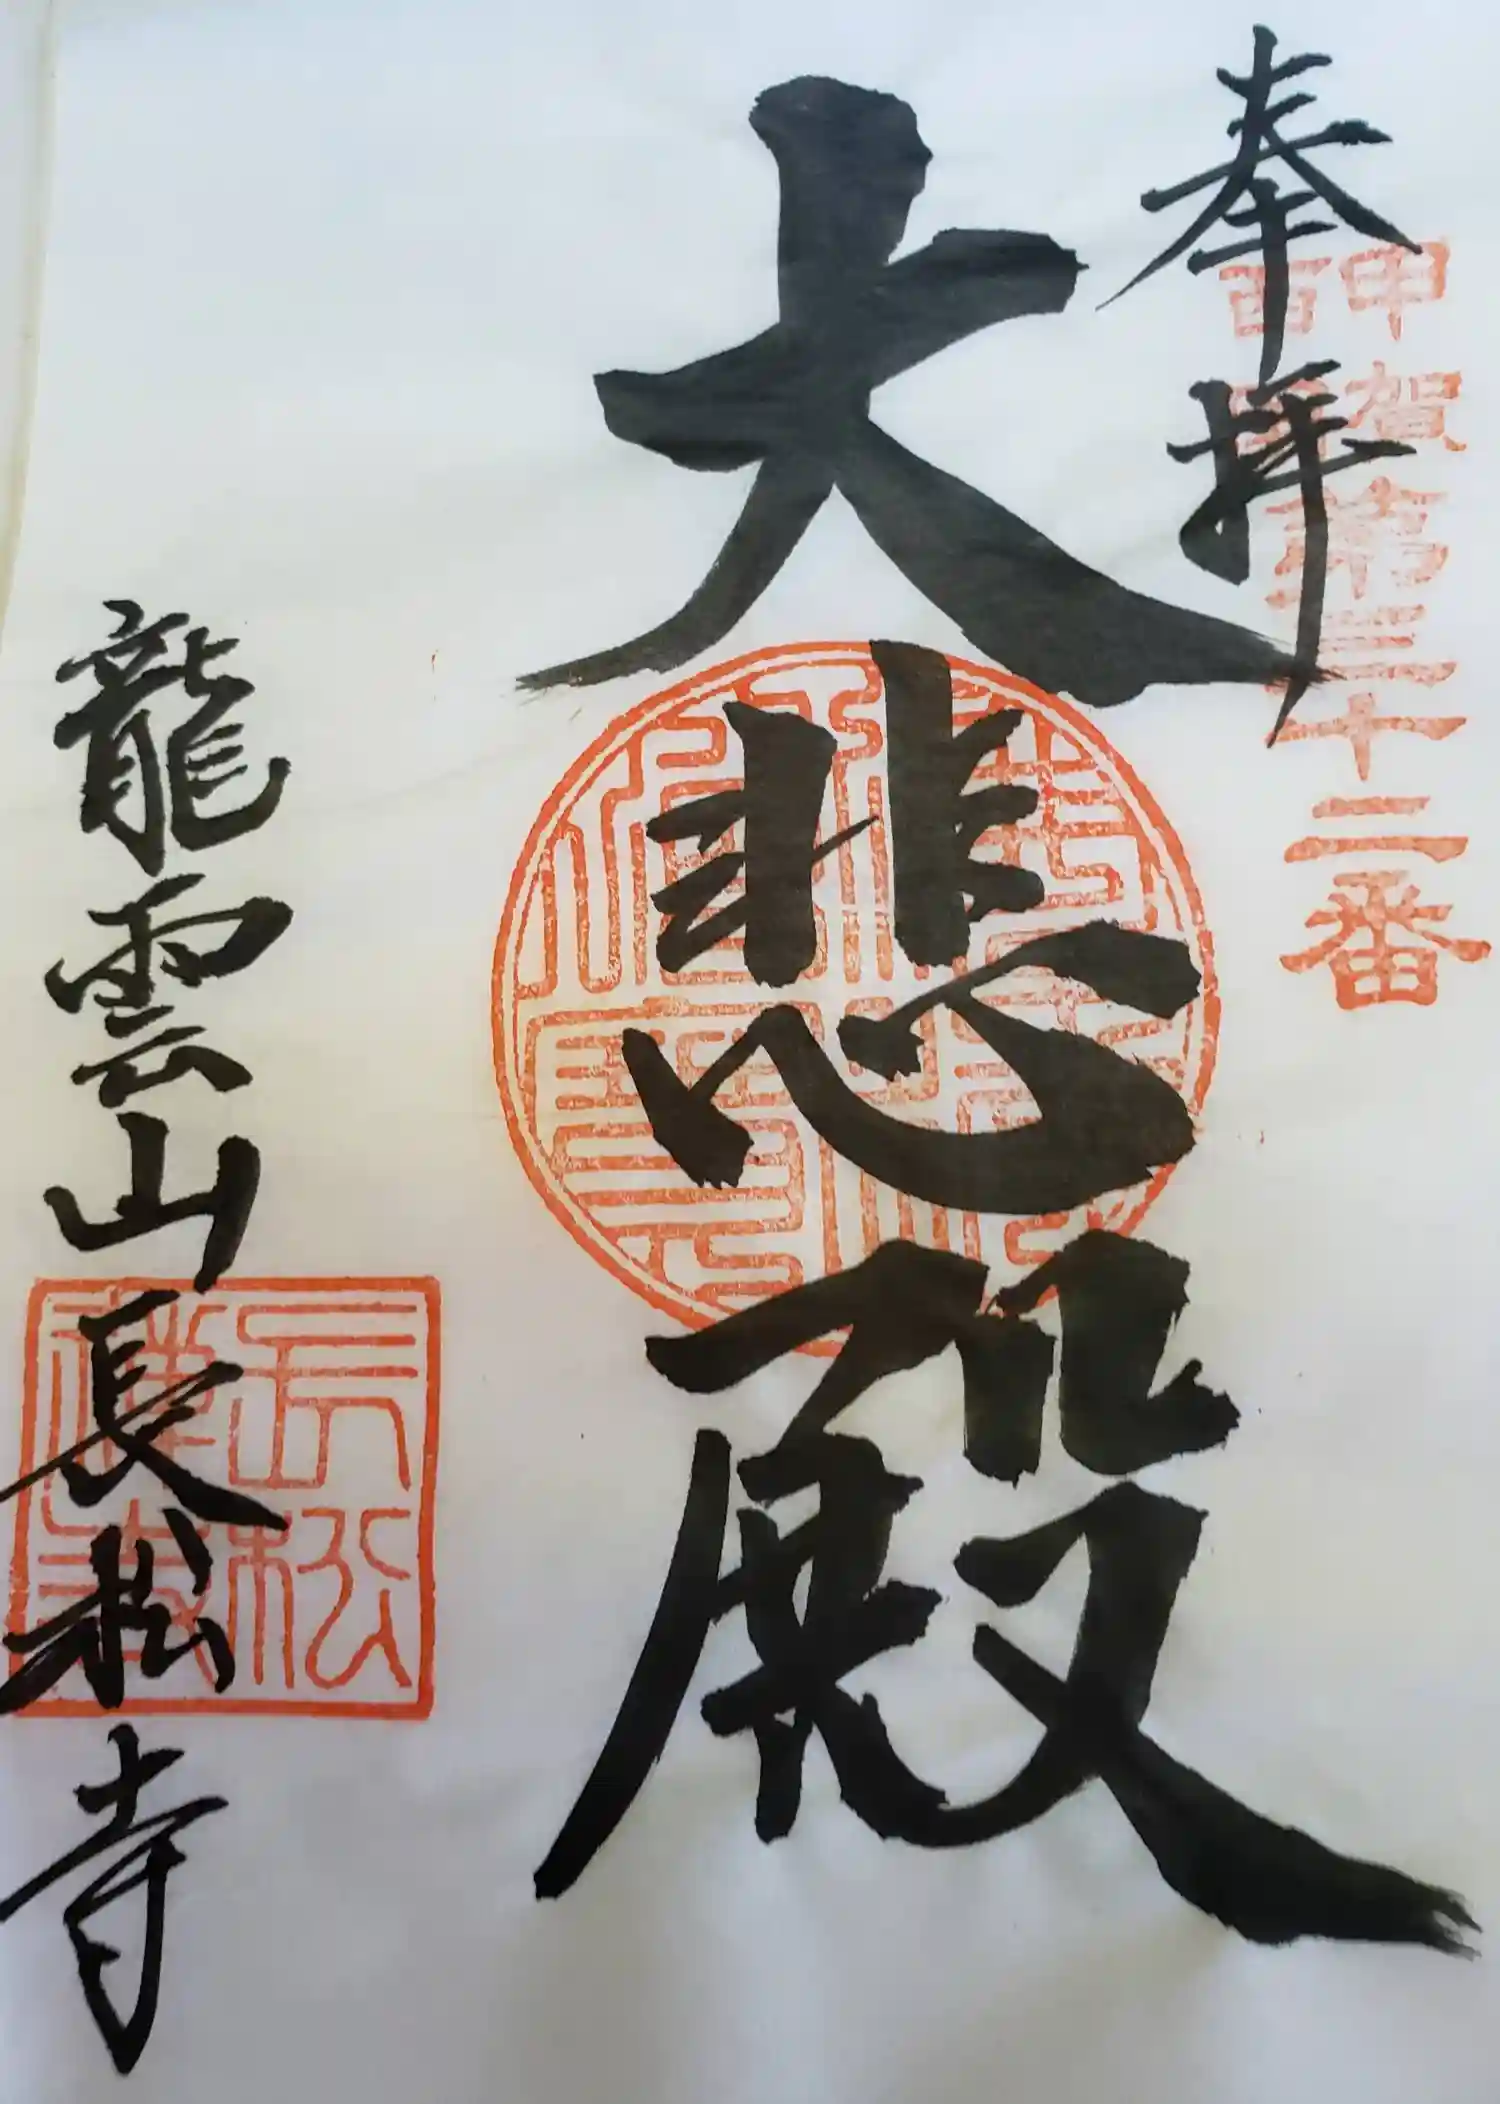 奉拝
甲賀
西国
第三十二番
大悲殿
龍雲山長松寺
長松禅寺